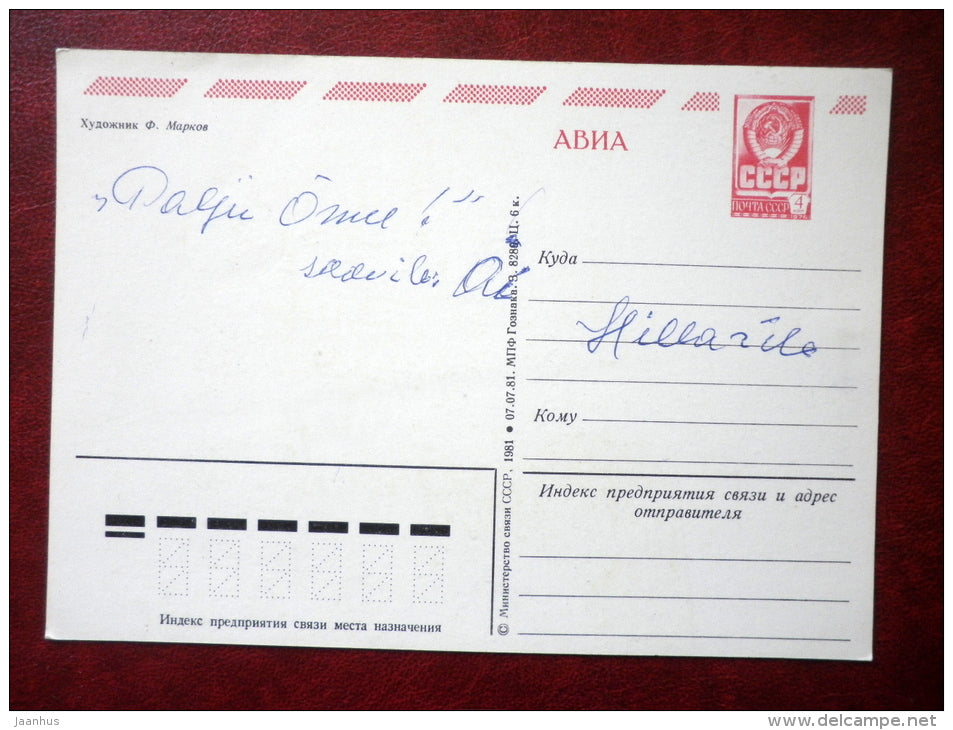 Художник Ф. Марков
АВИА
СССР
ПОЧТА СССР
4
„Palju Õnne!“
soovib
Куда
Hillarile
Кому
Индекс предприятия связи и адрес
отправителя
Индекс предприятия связи места назначения
© Министерство связи СССР, 1981 ● 07.07.81. МПФ Гознака. З. Ц. 6 к.
jaanhus
www.delcampe.net